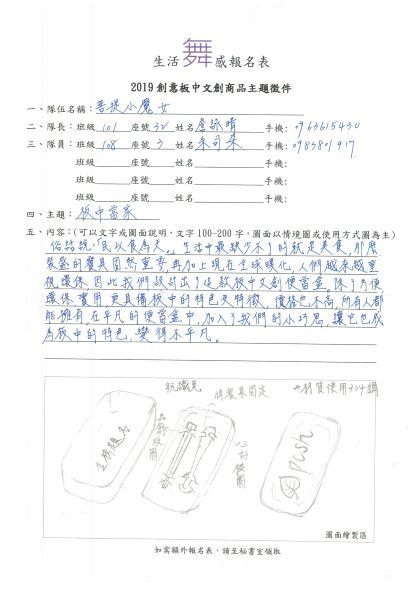 生活舞感報名表
2019創意板中文創商品主題徵件
一、隊伍名稱:菩提小魔女
二、隊長:班級 101 座號 32 姓名 詹詠晴 手機:0963615430
三、隊員:班級 108 座號 3 姓名 朱可 手機:0983801917
班級 座號 姓名 手機:
班級 座號 姓名 手機:
班級 座號 姓名 手機:
四、主題:板中當家
五、內容:(可以文字或圖面說明,文字100-200字,圖面以情境圖或使用方式圖為主)
俗話說「民以食為天」。生活中最缺少不了的就是美食,那麼
裝盛的餐具固然重要,再加上現在全球暖化,人們越來越重
視環保,因此我們設計出了這款板中文創便當盒。除了方便、
環保、實用,更具備板中的特色及特徵,價格也不高,所有人都
能擁有。在平凡的便當盒中,加入了我們的小巧思,讓它也成
為板中的特色,變得不平凡。
將餐具固定
*材質使用304鋼
push
圖面繪製區
如需額外報名表,請至秘書室領取